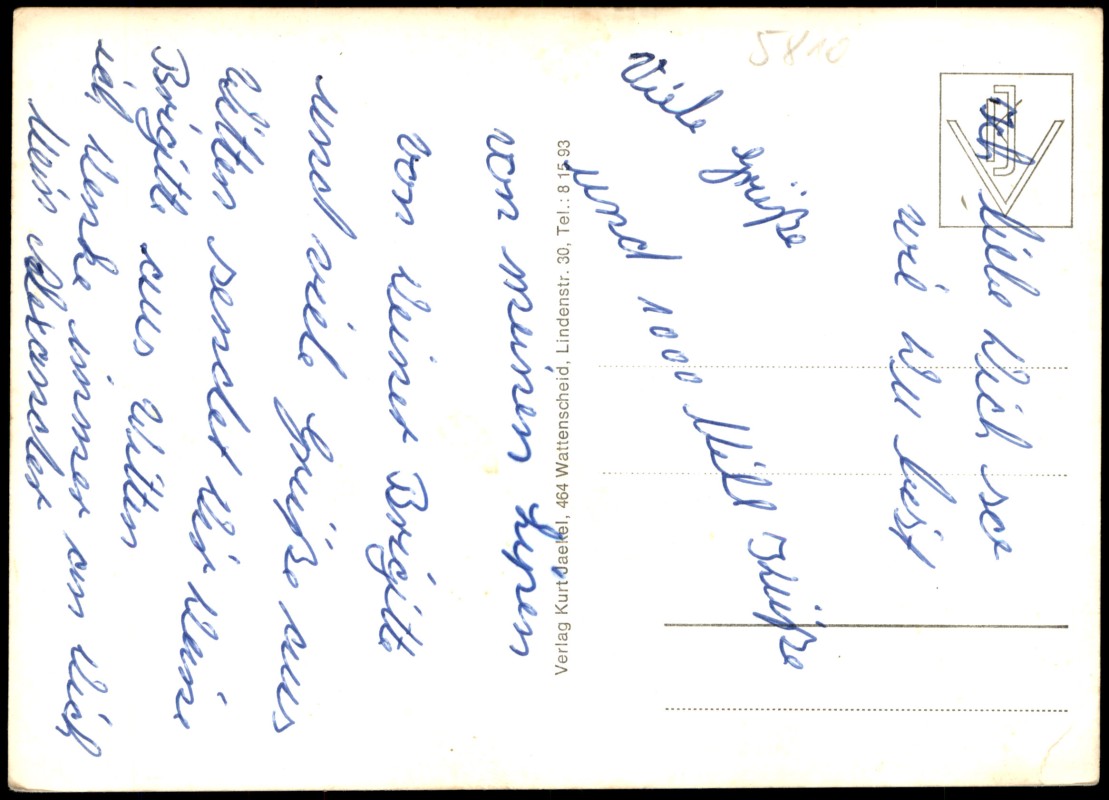 5810
Ich Liebe Dich so
wie Du bist
Viele Grüße
und 1000 Mill Küße
von meinen Lipen
von Deiner Brigitte
und viele Grüße aus
Witten sendet Dir Deine
Brigitte aus Witten
ich denke immer an Dich
Mein Alexander
Verlag Kurt Jaekel, 464 Wattenscheid, Lindenstr. 30, Tel.: 8 15 93